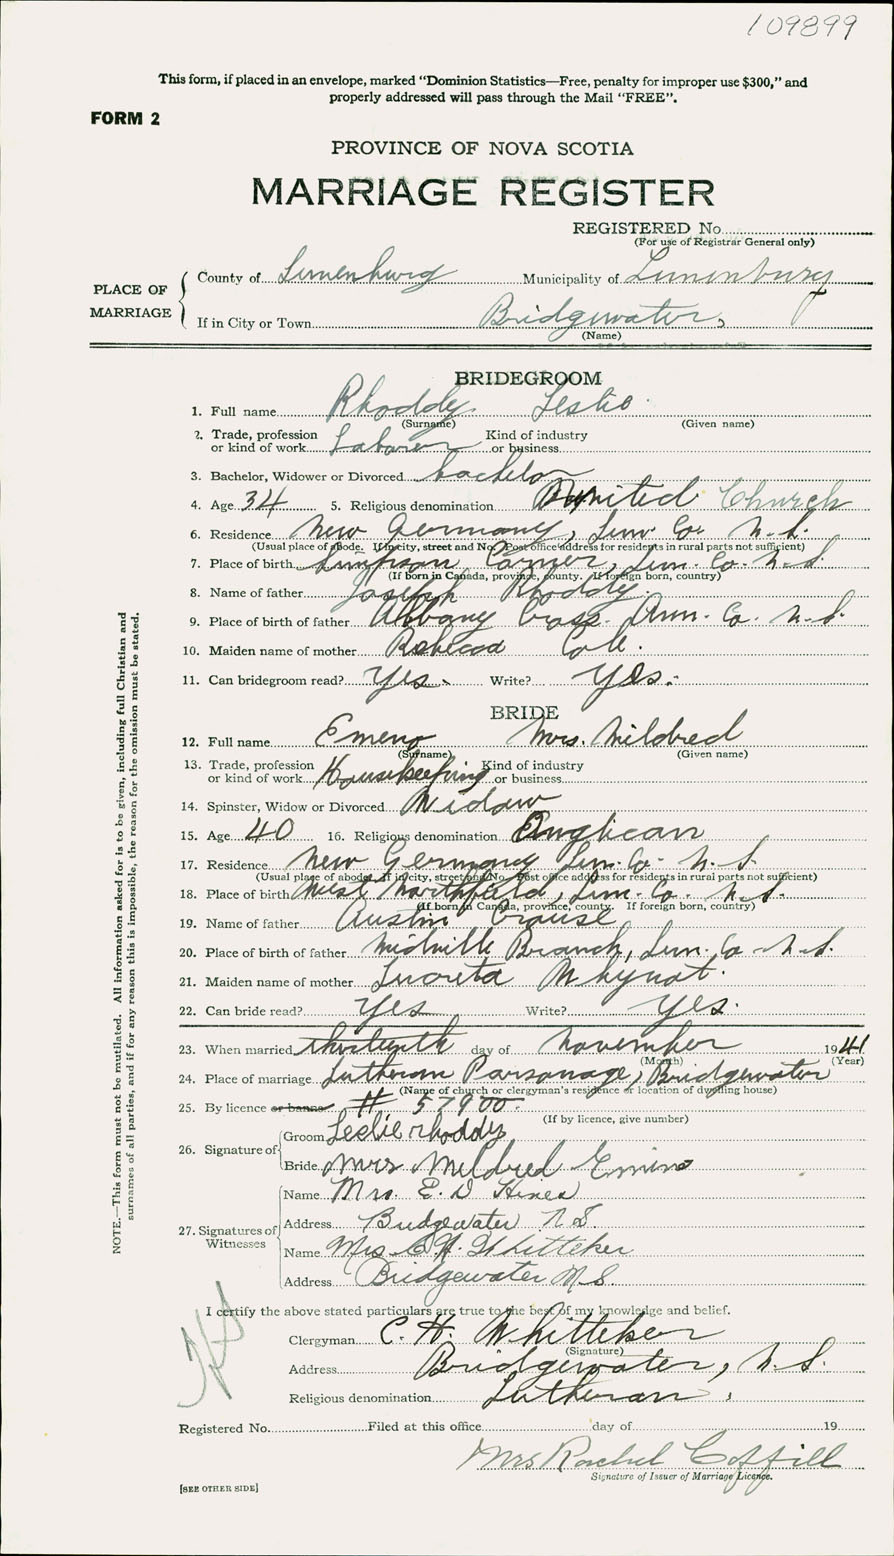 109899
This form, if placed in an envelope, marked "Dominion Statistics—Free, penalty for improper use $300," and
properly addressed will pass through the Mail "FREE".
FORM 2
PROVINCE OF NOVA SCOTIA
MARRIAGE REGISTER
REGISTERED No.
(For use of Registrar General only)
PLACE OF MARRIAGE
County of Lunenburg Municipality of Lunenburg
If in City or Town Bridgewater,
(Name)
BRIDEGROOM
1. Full name Rhoddy Leslie
(Surname) (Given name)
2. Trade, profession or kind of work Laborer Kind of industry or business
3. Bachelor, Widower or Divorced bachelor
4. Age 34 5. Religious denomination United Church
6. Residence New Germany, Lun. Co. N.S.
(Usual place of abode. If in city, street and No. Post office address for residents in rural parts not sufficient)
7. Place of birth Simpson Corner, Lun. Co. N.S.
(If born in Canada, province, county. If foreign born, country)
8. Name of father Joseph Rhoddy.
9. Place of birth of father Albany Cross. Ann. Co. N.S.
10. Maiden name of mother Cole.
11. Can bridegroom read? Yes. Write? Yes.
BRIDE
12. Full name Emeno Mrs. Mildred
(Surname) (Given name)
13. Trade, profession or kind of work Housekeeping Kind of industry or business
14. Spinster, Widow or Divorced Widow
15. Age 40 16. Religious denomination Anglican
17. Residence New Germany Lun. Co. N.S.
(Usual place of abode. If in city, street and No. Post office address for residents in rural parts not sufficient)
18. Place of birth West Northfield, Lun. Co. N.S.
(If born in Canada, province, county. If foreign born, country)
19. Name of father Austin Crouse
20. Place of birth of father Midville Branch, Lun. Co. N.S.
21. Maiden name of mother Lucreta Whynot.
22. Can bride read? Yes Write? Yes.
23. When married thirteenth day of November 1941
(Month) (Year)
24. Place of marriage Lutheran Parsonage, Bridgewater
(Name of church or clergyman's residence or location of dwelling house)
25. By licence or banns #. 57900.
(If by licence, give number)
26. Signature of
Groom Leslie rhoddy
Bride Mrs Mildred Emino
27. Signatures of Witnesses
Name Mrs. E. D Hines
Address Bridgewater N.S.
Name Mrs C. H. Whitteker
Address Bridgewater N.S.
I certify the above stated particulars are true to the best of my knowledge and belief.
Clergyman C. H. Whitteker
(Signature)
Address Bridgewater, N.S.
Religious denomination Lutheran.
Registered No. Filed at this office day of 19
Mrs Rachel Coffill
Signature of Issuer of Marriage Licence.
[SEE OTHER SIDE]
NOTE.—This form must not be mutilated. All information asked for is to be given, including full Christian and
surnames of all parties, and if for any reason this is impossible, the reason for the omission must be stated.